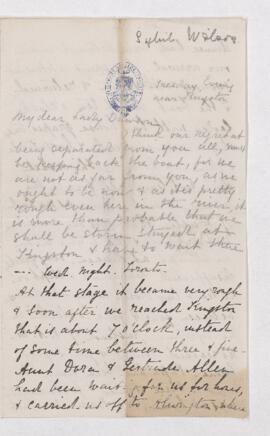 Sybil Wilson
Tuesday Evening
near Kingston
My dear Lady D
I think our regret at
being separated from you all, must
be keeping back the boat, for we
are not as far from you, as we
ought to be now & as it is pretty
rough even here in the river it
is more than probable that we
shall be storm stayed at
Kingston & have to wait there
--- Wed. Night. Toronto.
At that stage it became very rough
& soon after we reached Kingston
that is about 7 o'clock, instead
of some time between three & five.
Aunt Dora & Gertrude Allen
had been waiting for us for hours,
& carried us off to Alwington where